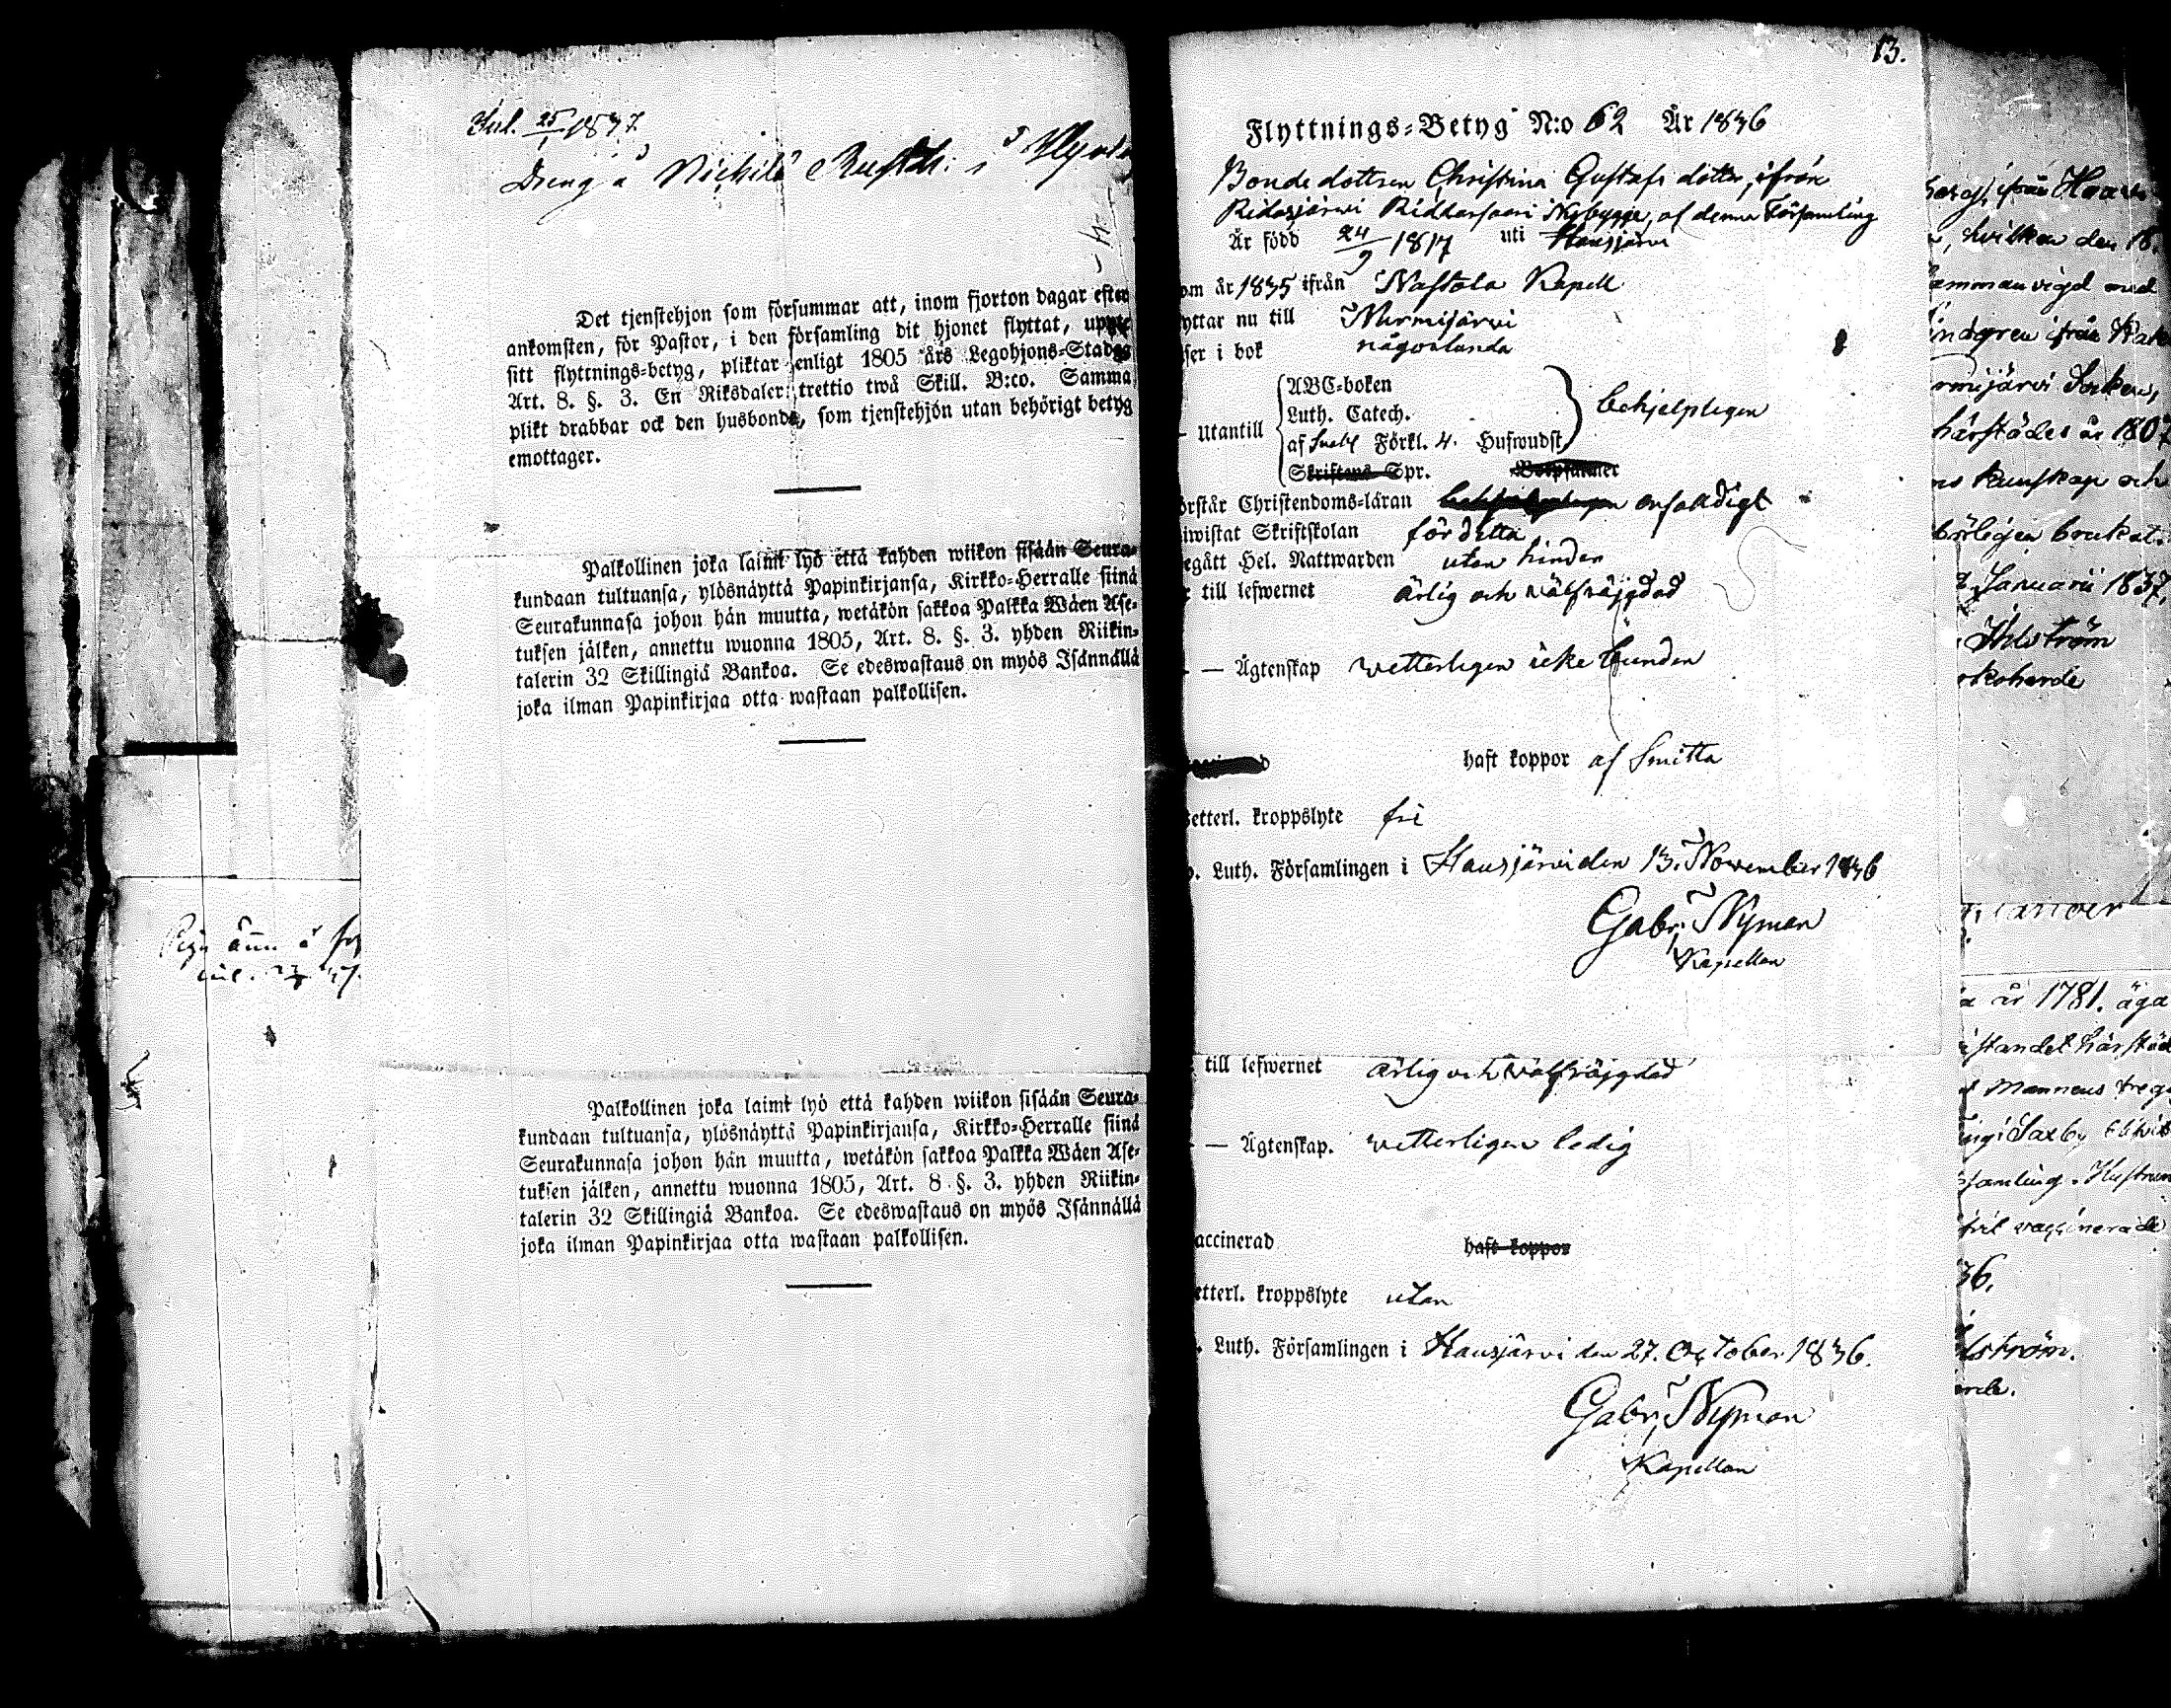 Inl. 25/1 1837.
Dreng å Nichilä Rusth: i
Det tjenstehjon som försummar att, inom fjorton dagar efter
ankomsten, för Pastor, i den församling dit hjonet flyttat, uppte
sitt flyttnings-betyg, pliktar enligt 1805 års Legohjons-Stadgs
Art. 8. §. 3. En Riksdaler trettio twå Skill. B:co. Samma
plikt drabbar ock den husbonde, som tjenstehjon utan behörigt betyg
emottager.
Palkollinen joka laimi lyö että kahden wiikon sisään Seura-
kundaan tultuansa, ylösnäyttä Papinkirjansa, Kirkko-Herralle siinä
Seurakunnasa johon hän muutta, wetäkön sakkoa Palkka Wäen Ase-
tuksen jälken, annettu wuonna 1805, Art. 8. §. 3. yhden Riikin-
talerin 32 Skillingiä Bankoa. Se edeswastaus on myös Isännällä
joka ilman Papinkirjaa otta wastaan palkollisen.
Palkollinen joka laimi lyö että kahden wiikon sisään Seura-
kundaan tultuansa, ylösnäyttä Papinkirjansa, Kirkko-Herralle siinä
Seurakunnasa johon hän muutta, wetäkön sakkoa Palkka Wäen Ase-
tuksen jälken, annettu wuonna 1805, Art. 8 §. 3. yhden Riikin-
talerin 32 Skillingiä Bankoa. Se edeswastaus on myös Isännällä
joka ilman Papinkirjaa otta wastaan palkollisen.
13.
Flyttnings-Betyg N:o 62 År 1836
Bonde dottren Christina Gustafs dotter, ifrån
Ridasjärwi Riddarsaari Nybygge, af denna Församling
Är född 24/9 1817 uti Hausjärwi
om år 1835 ifrån Nastola Kapell
yttar nu till Nurmijärwi
ser i bok någorlunda
Utantill
ABC-boken
Luth. Catech.
af Sveb. Förkl. 4. Hufwudst.
Skriftens Spr.
behjelpligen
örstår Christendoms-läran enfaldigt
iwistat Skriftskolan för detta
egått Hel. Nattwarden utan hinder
r till lefwernet ärlig och wälfräjgdad
— Ägtenskap wetterligen icke bunden
haft koppor af Smitta
etterl. kroppslyte fri
. Luth. Församlingen i Hausjärwi den 13. November 1836
Gabr. Nyman
Kapellan
till lefwernet ärlig och wälfräjgdad
— Ägtenskap. wetterligen ledig
accinerad haft koppor
etterl. kroppslyte utan
. Luth. Församlingen i Hausjärwi den 27. October 1836.
Gabr. Nyman
Kapellan
, hvilken den 18.
ammanvigd med
indgren ifrån
rmijärvi Socken,
härstädes år 1807
kunskap och
börligen brukat.
Januarii 1837,
Ahlström
rkoherde
år 1781. äga
standet härstäd
Mannens
Saxby
samling. Hustrun
vaccinerade
36.
lström.
erde.